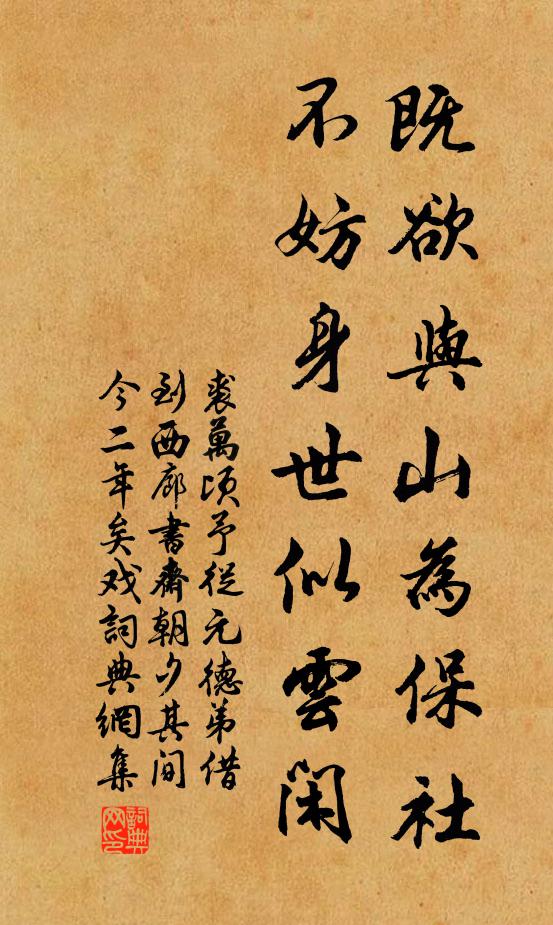 既欲與山為保社
不妨身世似雲閑
裘萬頃予從元德弟借
到西廊書齋朝夕其間
今二年矣戏詞典網集
詞典
网印